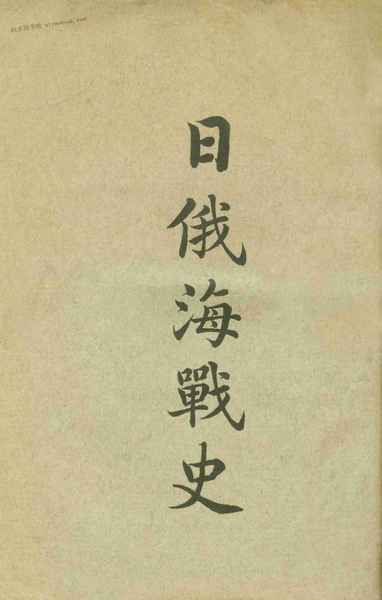 日俄海戰史